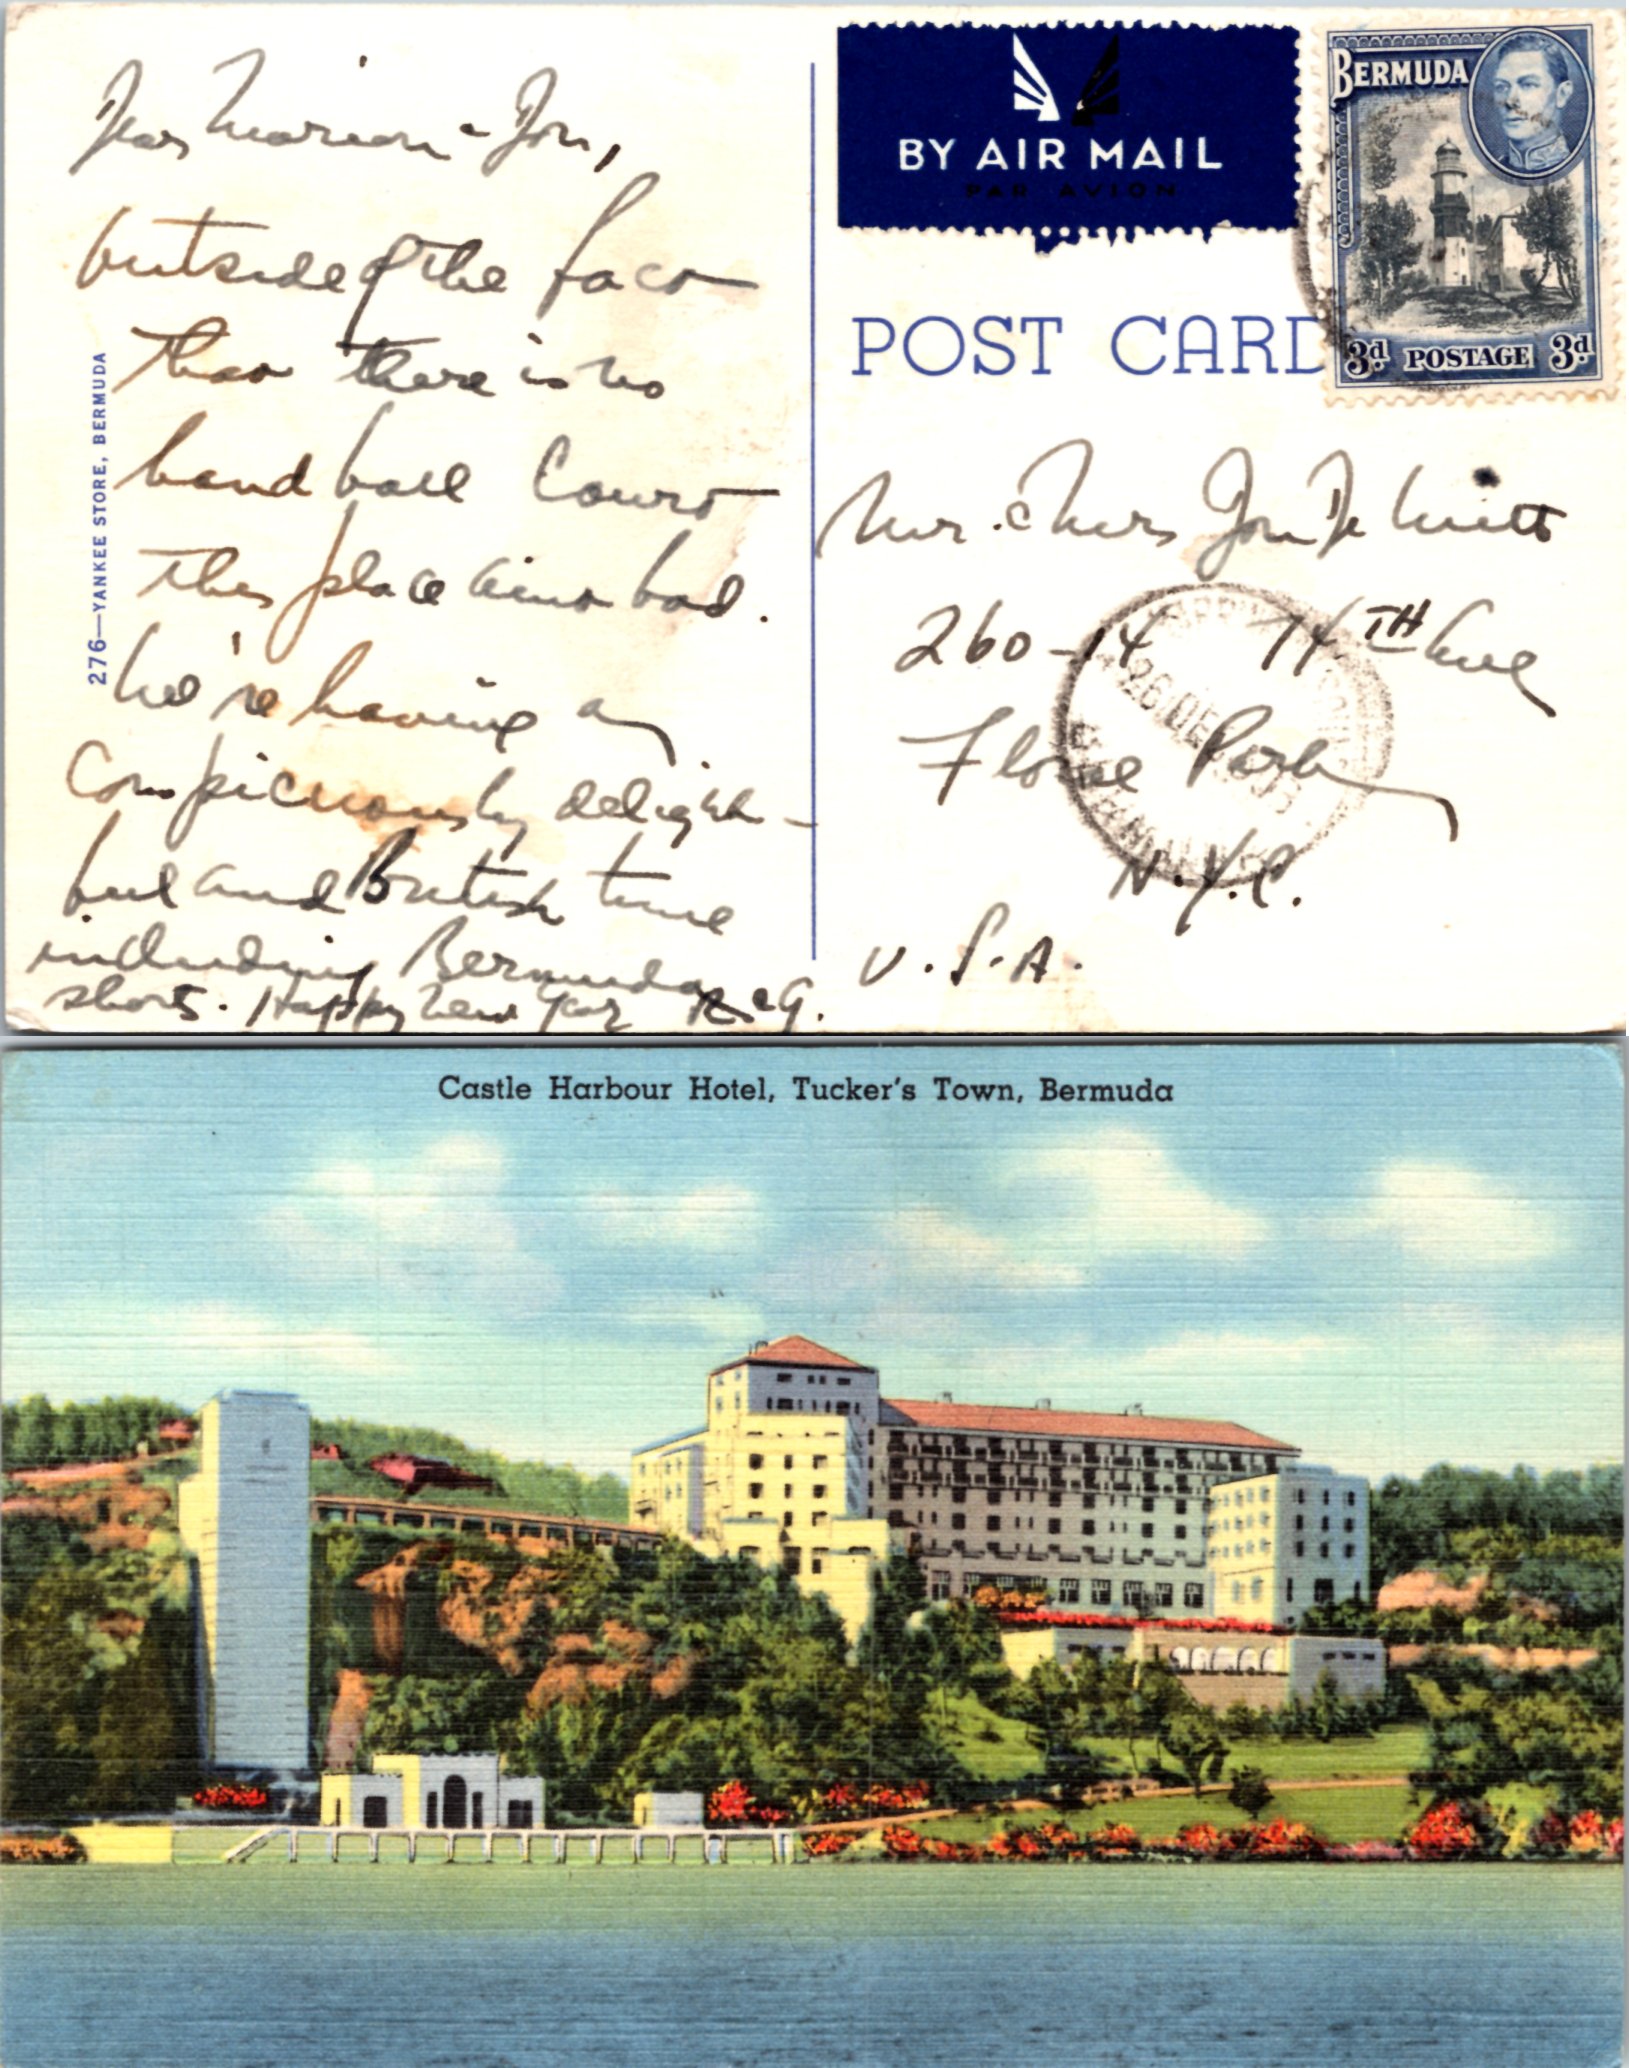 Dear Marion & Jon,
Outside of the fact
that there is no
hand ball court
this place aint bad.
We're having a
conspicuously delight-
ful and British time
including Bermuda
shorts. Happy New Year R & G.
276—YANKEE STORE, BERMUDA
BY AIR MAIL
PAR AVION
BERMUDA
3d POSTAGE 3d
POST CARD
Mr. & Mrs Jon De Witt
260-14 74TH Ave
Floral Park
N.Y.C.
U.S.A.
26 DE
Castle Harbour Hotel, Tucker's Town, Bermuda